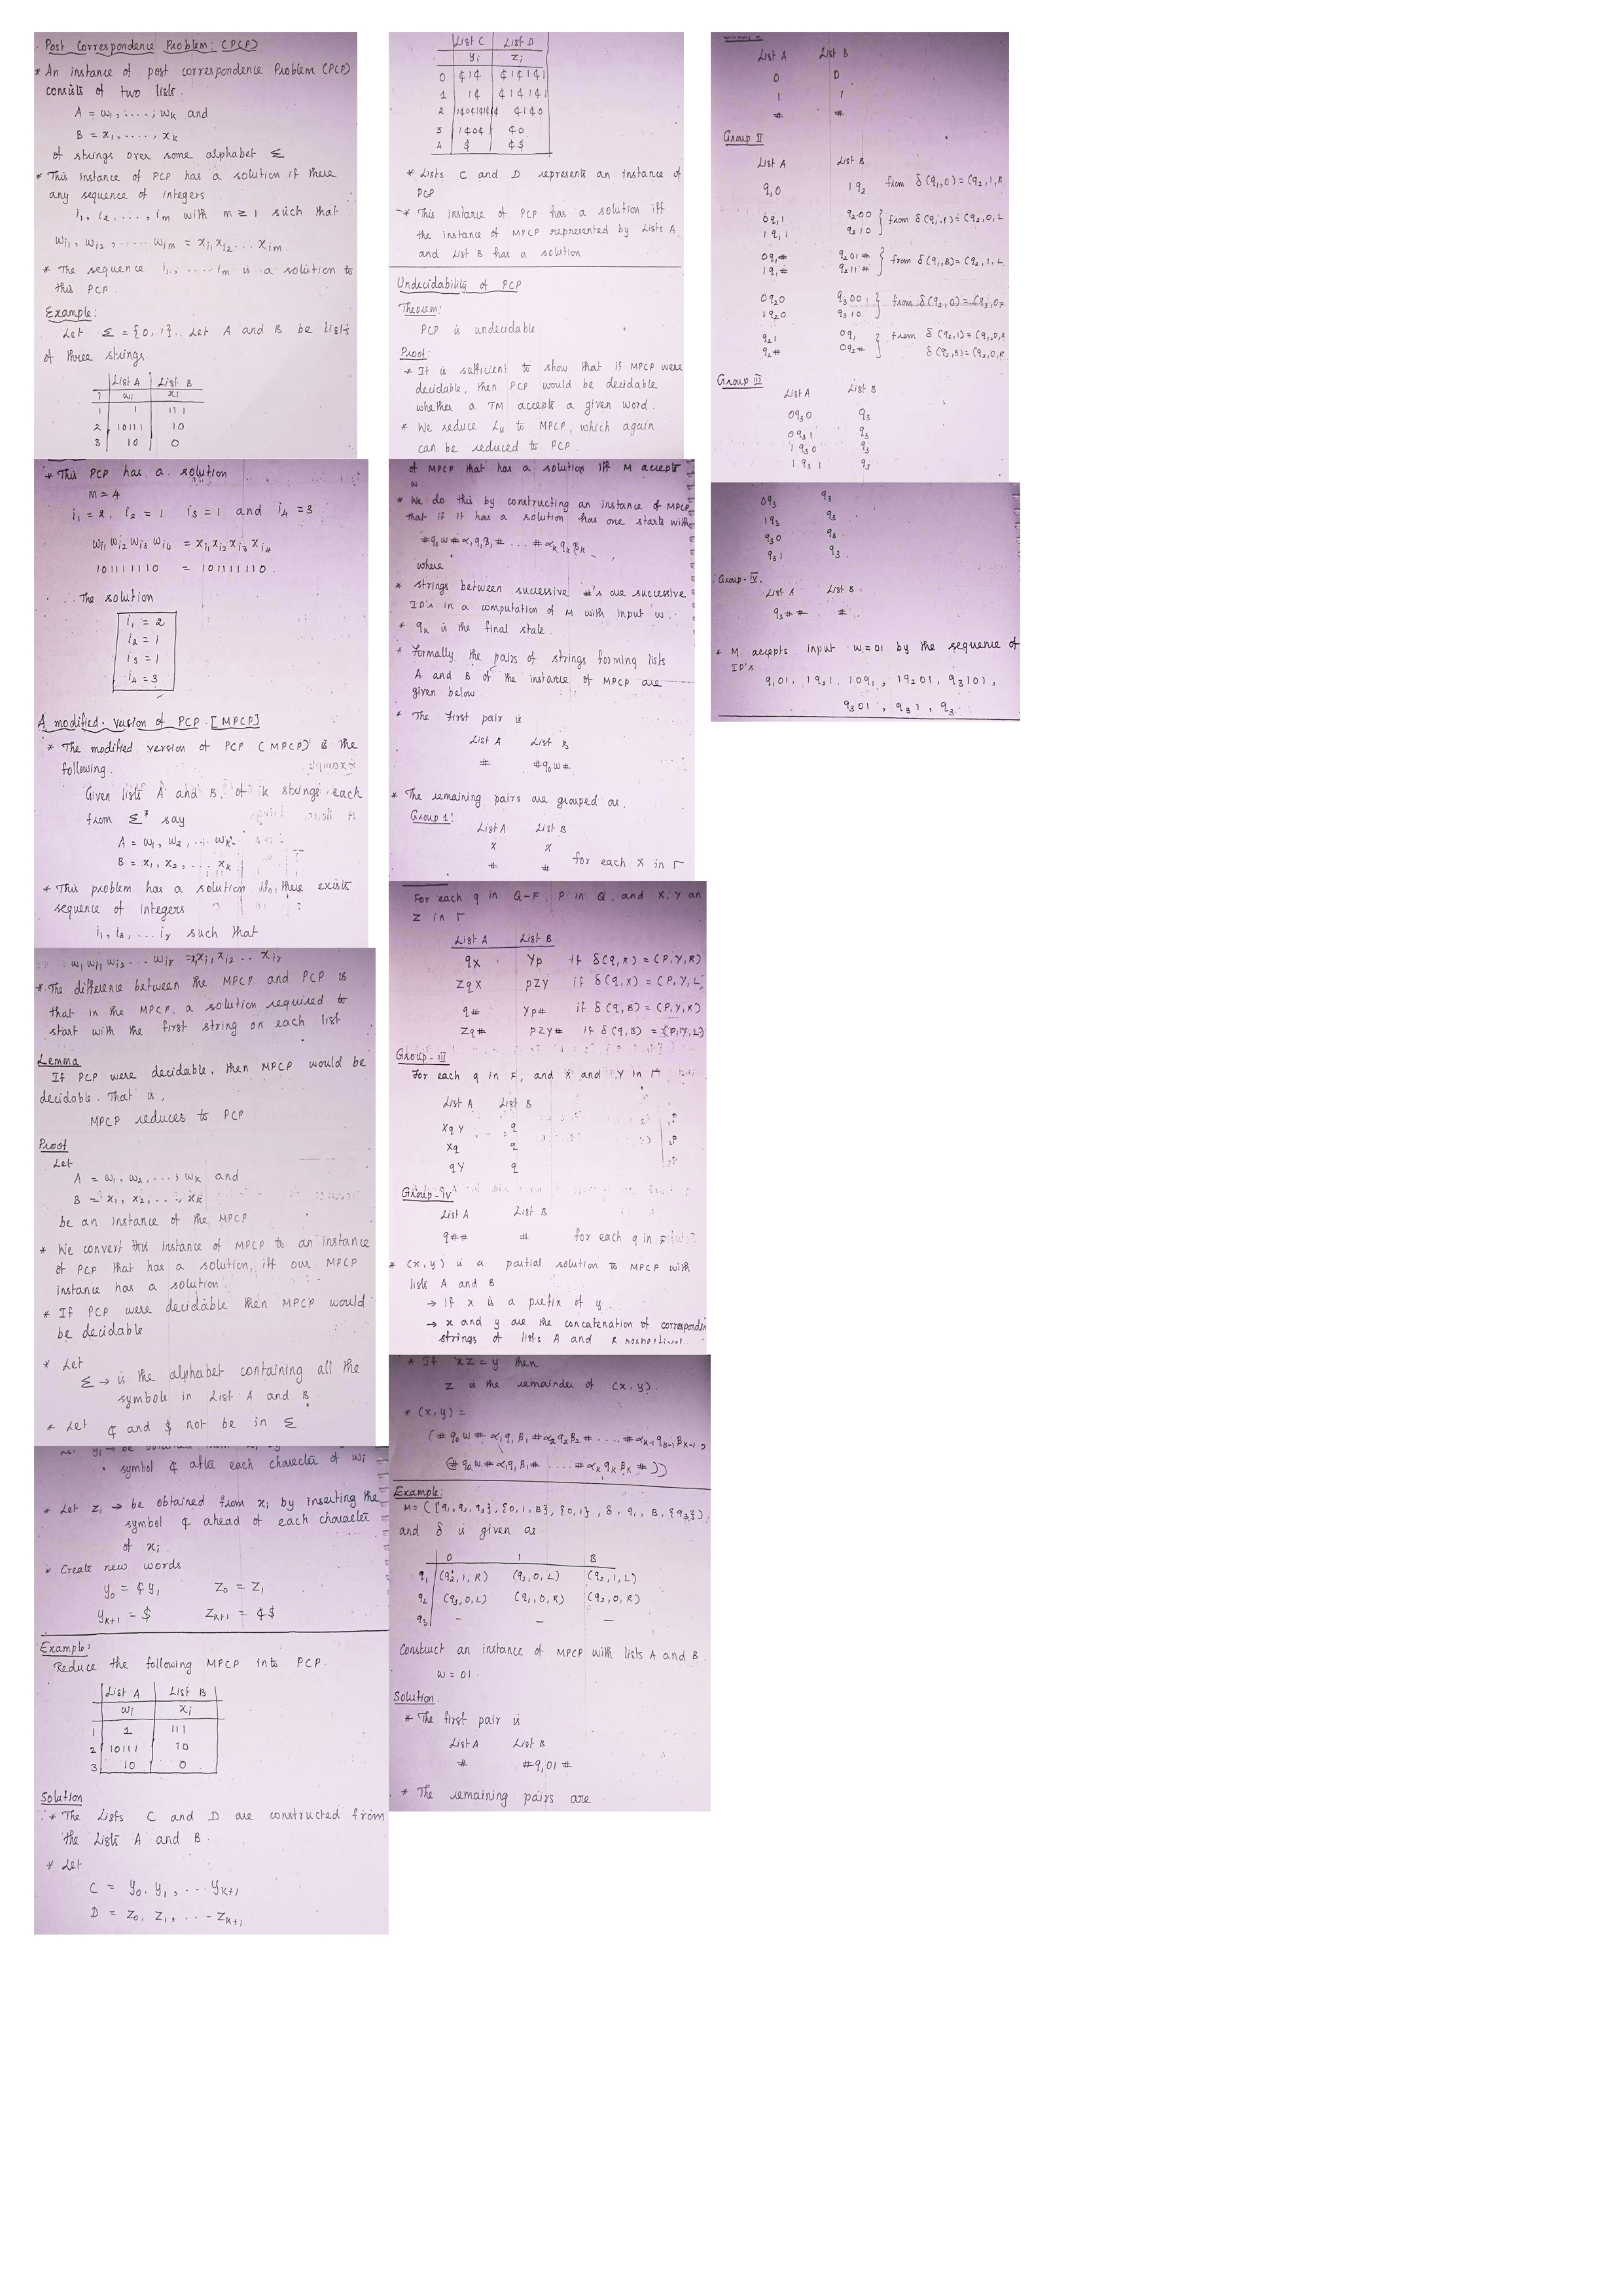 Post Correspondence Problem: (PCP)
* An instance of post correspondence Problem (PCP)
consists of two lists.
A = w₁, ....., wₖ and
B = x₁, ....., xₖ
of strings over some alphabet Σ
* This instance of PCP has a solution if there
any sequence of integers
i₁, i₂, ...., iₘ with m ≥ 1 such that
wᵢ₁, wᵢ₂, ..... wᵢₘ = xᵢ₁ xᵢ₂ ... xᵢₘ
* The sequence i₁, .... iₘ is a solution to
this PCP.
Example:
Let Σ = {0, 1}. Let A and B be lists
of three strings.
List A List B
i wᵢ xᵢ
1 1 111
2 10111 10
3 10 0
* This PCP has a solution
m = 4
i₁ = 2, i₂ = 1 i₃ = 1 and i₄ = 3
wᵢ₁ wᵢ₂ wᵢ₃ wᵢ₄ = xᵢ₁ xᵢ₂ xᵢ₃ xᵢ₄
101111110 = 101111110
∴ The solution
i₁ = 2
i₂ = 1
i₃ = 1
i₄ = 3
A modified version of PCP [MPCP]
* The modified version of PCP (MPCP) is the
following.
Given lists A and B, of k strings each
from Σ* say
A = w₁, w₂, ... wₖ
B = x₁, x₂, ... xₖ
* This problem has a solution if there exists
sequence of integers
i₁, i₂, ... iᵣ such that
w₁ wᵢ₁ wᵢ₂ ... wᵢᵣ = x₁ xᵢ₁ xᵢ₂ ... xᵢᵣ
* The difference between the MPCP and PCP is
that in the MPCP, a solution required to
start with the first string on each list
Lemma
If PCP were decidable, then MPCP would be
decidable. That is,
MPCP reduces to PCP
Proof
Let
A = w₁, w₂, ...., wₖ and
B = x₁, x₂, ...., xₖ
be an instance of the MPCP
* We convert this instance of MPCP to an instance
of PCP that has a solution, iff our MPCP
instance has a solution.
* If PCP were decidable then MPCP would
be decidable
* Let
Σ → is the alphabet containing all the
symbols in List A and B
* Let ¢ and $ not be in Σ
symbol ¢ after each character of wᵢ
* Let zᵢ → be obtained from xᵢ by inserting the
symbol ¢ ahead of each character
of xᵢ
* Create new words
y₀ = ¢y₁ z₀ = z₁
yₖ₊₁ = $ zₖ₊₁ = ¢$
Example:
Reduce the following MPCP into PCP.
List A List B
wᵢ xᵢ
1 1 111
2 10111 10
3 10 0
Solution
* The Lists C and D are constructed from
the Lists A and B.
* Let
C = y₀, y₁, ... yₖ₊₁
D = z₀, z₁, ... zₖ₊₁
List C List D
yᵢ zᵢ
0 ¢1¢ ¢1¢1¢1
1 1¢ ¢1¢1¢1
2 1¢0¢1¢1¢1¢ ¢1¢0
3 1¢0¢ ¢0
4 $ ¢$
* Lists C and D represents an instance of
PCP
* This instance of PCP has a solution iff
the instance of MPCP represented by Lists A
and List B has a solution
Undecidability of PCP
Theorem:
PCP is undecidable
Proof:
* It is sufficient to show that if MPCP were
decidable, then PCP would be decidable
whether a TM accepts a given word.
* We reduce Lᵤ to MPCP, which again
can be reduced to PCP
of MPCP that has a solution iff M accepts
w
* We do this by constructing an instance of MPCP
that if it has a solution has one starts with
#q₀w#α₁q₁β₁# ... #αₖqₖβₖ
where
* Strings between successive #'s are successive
ID's in a computation of M with input w.
* qₖ is the final state.
* Formally, the pairs of strings forming lists
A and B of the instance of MPCP are
given below
* The first pair is
List A List B
# #q₀w#
* The remaining pairs are grouped as.
Group 1:
List A List B
X X
# # for each X in Γ
For each q in Q-F, P in Q, and X, Y an
Z in Γ
List A List B
qX Yp if δ(q,X) = (P,Y,R)
ZqX pZY if δ(q,X) = (P,Y,L)
q# Yp# if δ(q,B) = (P,Y,R)
Zq# pZY# if δ(q,B) = (P,Y,L)
Group-III
For each q in F, and X and Y in Γ
List A List B
XqY q
Xq q
qY q
Group-IV
List A List B
q## # for each q in F
* (x,y) is a partial solution to MPCP with
lists A and B
→ If x is a prefix of y.
→ x and y are the concatenation of correspondin
strings of lists A and B
* If xz = y then
z is the remainder of (x,y).
* (x,y) =
(#q₀w#α₁q₁β₁#α₂q₂β₂# .... #αₖ₋₁qₖ₋₁βₖ₋₁,
(#q₀w#α₁q₁β₁# .... #αₖqₖβₖ#))
Example:
M = ({q₁, q₂, q₃}, {0, 1, B}, {0, 1}, δ, q₁, B, {q₃})
and δ is given as.
0 1 B
q₁ (q₂,1,R) (q₂,0,L) (q₂,1,L)
q₂ (q₃,0,L) (q₁,0,R) (q₂,0,R)
q₃ - - -
Construct an instance of MPCP with lists A and B
w = 01.
Solution.
* The first pair is
List A List B
# #q₁01#
* The remaining pairs are
List A List B
0 0
1 1
# #
Group II
List A List B
q₁0 1q₂ from δ(q₁,0) = (q₂,1,R
0q₁1 q₂00
1q₁1 q₂10 from δ(q₁,1) = (q₂,0,L
0q₁# q₂01#
1q₁# q₂11# from δ(q₁,B) = (q₂,1,L
0q₂0 q₃00
1q₂0 q₃10 from δ(q₂,0) = (q₃,0,
q₂1 0q₁ from δ(q₂,1) = (q₁,0,R
q₂# 0q₂# δ(q₂,B) = (q₂,0,R
Group III
List A List B
0q₃0 q₃
0q₃1 q₃
1q₃0 q₃
1q₃1 q₃
0q₃ q₃
1q₃ q₃
q₃0 q₃
q₃1 q₃
Group-IV.
List A List B
q₃## #
* M accepts input w=01 by the sequence of
ID's
q₁01, 1q₂1, 10q₁, 1q₂01, q₃101,
q₃01, q₃1, q₃.